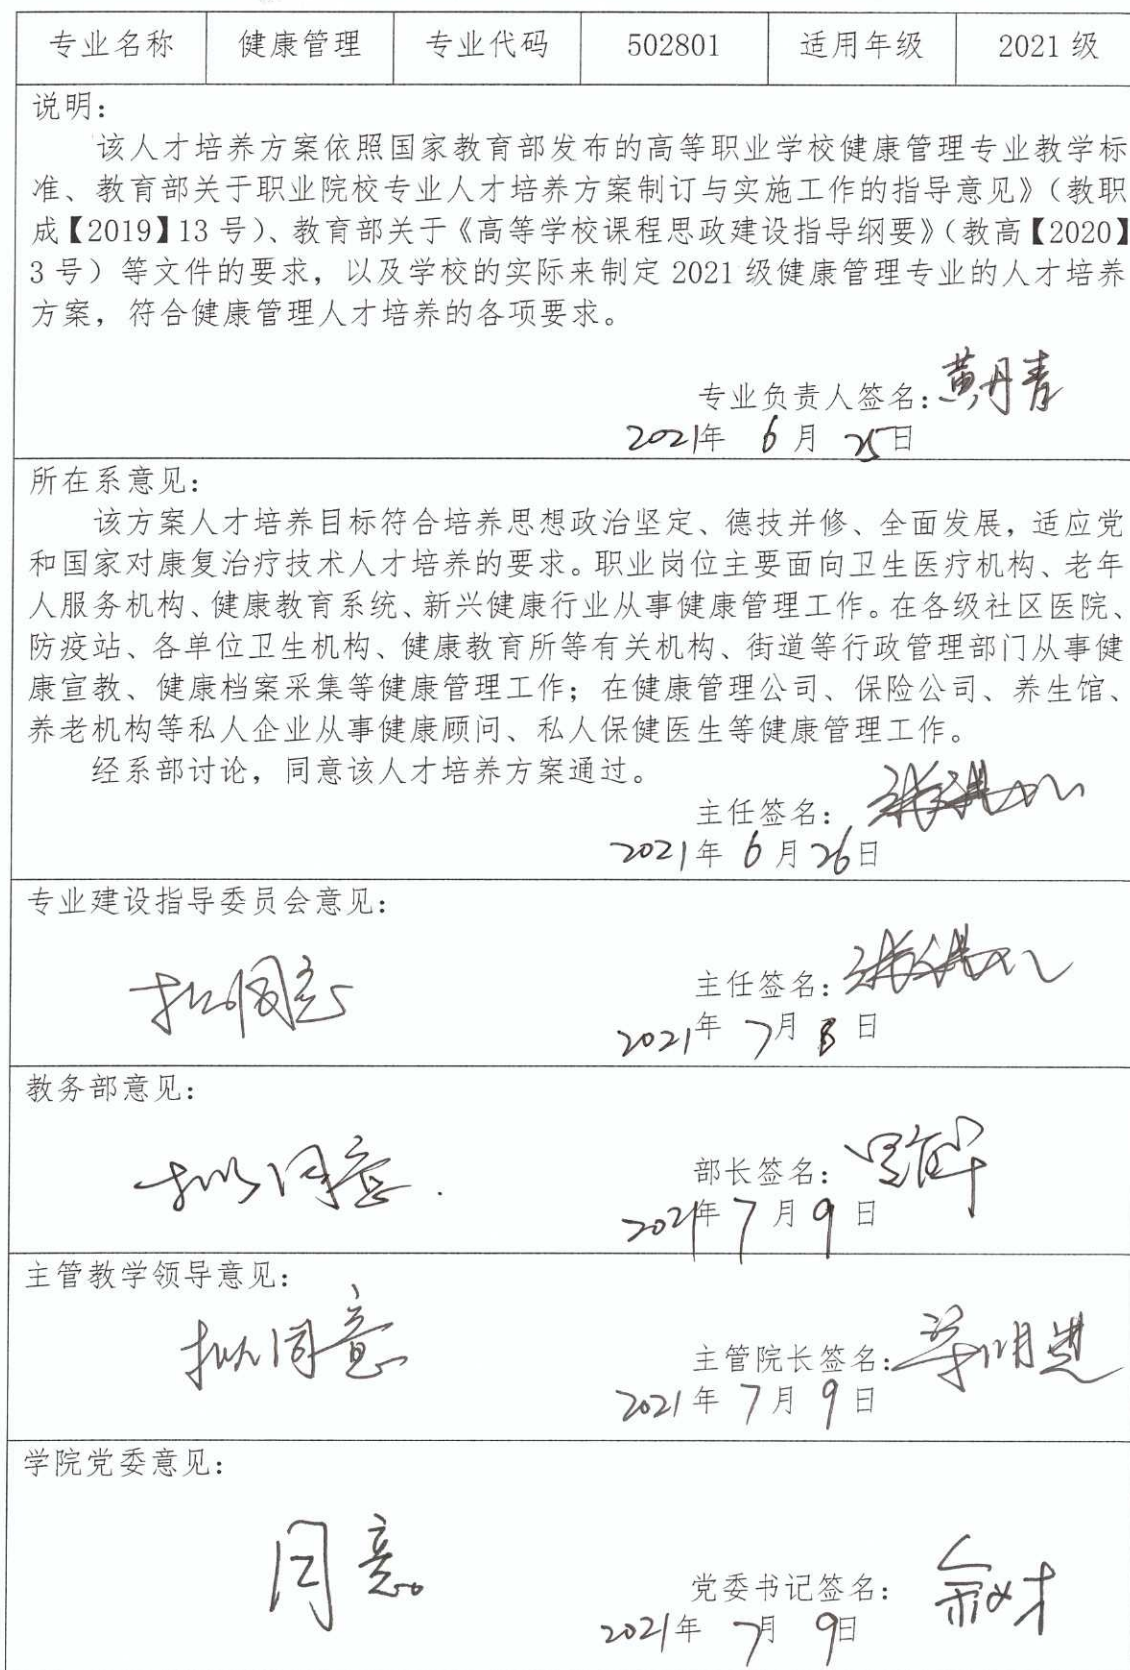 专业名称 健康管理 专业代码 502801 适用年级 2021 级
说明：
该人才培养方案依照国家教育部发布的高等职业学校健康管理专业教学标
准、教育部关于职业院校专业人才培养方案制订与实施工作的指导意见》（教职
成【2019】13 号）、教育部关于《高等学校课程思政建设指导纲要》（教高【2020】
3 号）等文件的要求，以及学校的实际来制定 2021 级健康管理专业的人才培养
方案，符合健康管理人才培养的各项要求。
专业负责人签名：黄丹青
2021年 6 月 25日
所在系意见：
该方案人才培养目标符合培养思想政治坚定、德技并修、全面发展，适应党
和国家对康复治疗技术人才培养的要求。职业岗位主要面向卫生医疗机构、老年
人服务机构、健康教育系统、新兴健康行业从事健康管理工作。在各级社区医院、
防疫站、各单位卫生机构、健康教育所等有关机构、街道等行政管理部门从事健
康宣教、健康档案采集等健康管理工作；在健康管理公司、保险公司、养生馆、
养老机构等私人企业从事健康顾问、私人保健医生等健康管理工作。
经系部讨论，同意该人才培养方案通过。
主任签名：
2021年 6 月 26日
专业建设指导委员会意见：
拟同意
主任签名：
2021年 7月 8 日
教务部意见：
拟同意.
部长签名：
2021年 7 月 9 日
主管教学领导意见：
拟同意
主管院长签名：
2021 年 7 月 9 日
学院党委意见：
同意
党委书记签名：
2021年 7月 9日